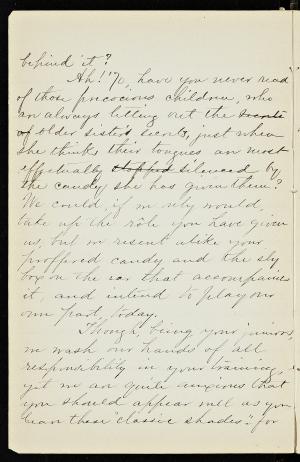 behind it?
Ah! '70, have you never read
of those precocious children, who
are always letting out the secrets
of older sister's secrets, just when
she thinks their tongues are most
effectually stopped silenced by
the candy she has given them?
We could, if we only would,
take up the rôle you have given
us, but we resent alike your
proffered candy and the sly
box on the ear that accompanies
it, and intend to play our
own part, today.
Though, being your juniors,
we wash our hands of all
responsibility in your training,
yet we are quite anxious that
you should appear well as you
leave these "classic shades": for